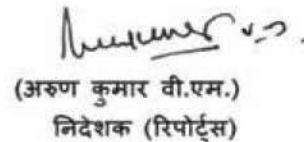 (अरुण कुमार वी.एम.)
निदेशक (रिपोर्ट्स)